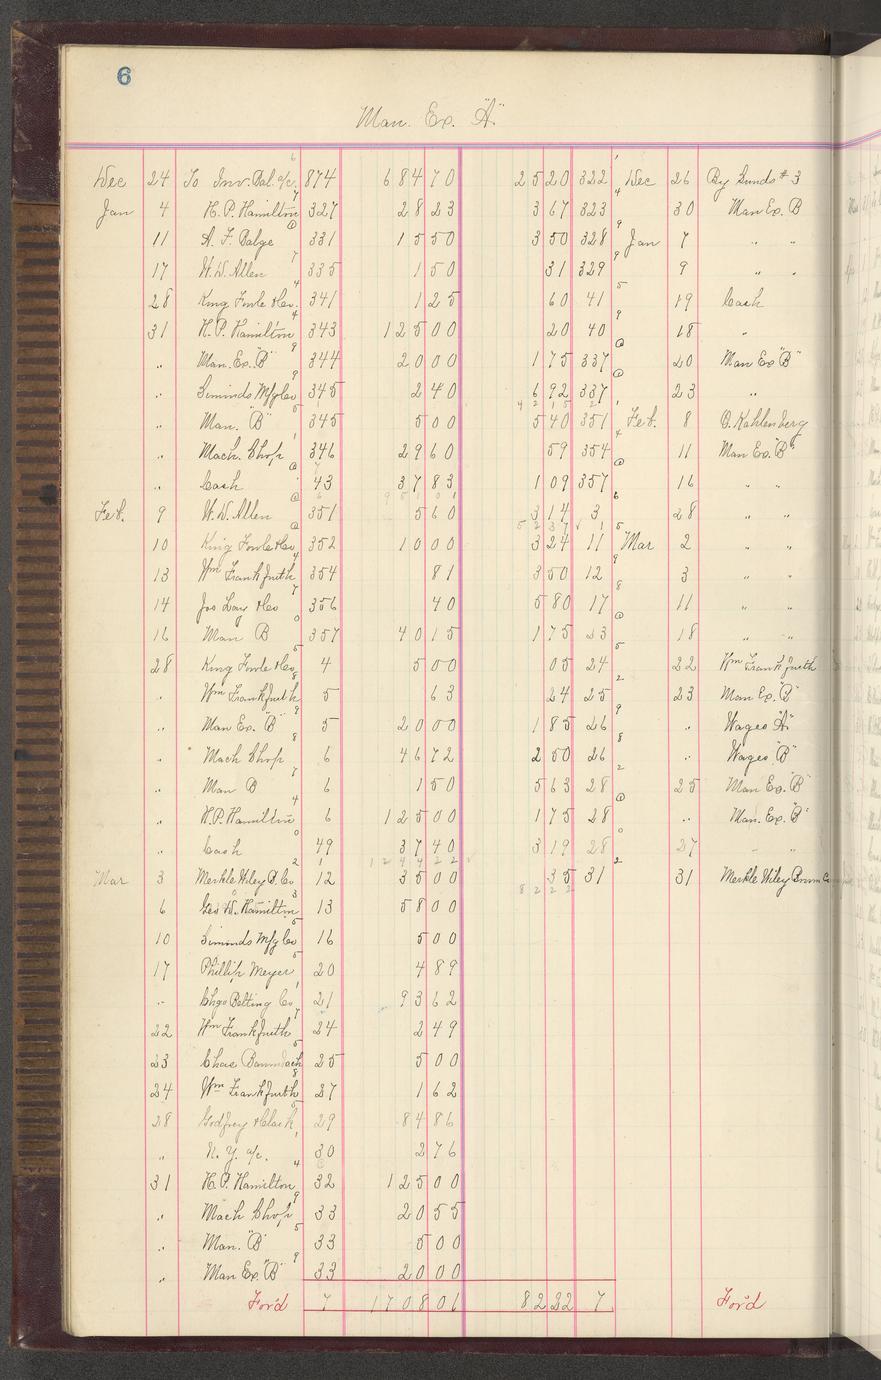 6
Man. Ex. "A"
Dec 24 To Inv. Bal. a/c. 874 684 70 25 20 322 Dec 26 By Sunds # 3
Jan 4 H. P. Hamilton 327 28 23 3 67 323 30 Man Ex. B
11 A. F. Balge 331 15 50 3 50 328 Jan 7 " "
17 W. W. Allen 335 1 50 31 329 9 " "
28 King Fowle & Co. 341 1 25 60 41 19 Cash
31 H. P. Hamilton 343 125 00 20 40 18 "
" Man. Ex. "B" 344 20 00 1 75 337 20 Man Ex "B"
" Simonds Mfg Co 345 2 40 6 92 337 23 "
" Man. "B" 345 5 00 5 40 351 Feb. 8 O. Kahlenberg
" Mach. Shop 346 29 60 59 354 11 Man Ex. "B"
" Cash 43 37 83 1 09 357 16 " "
Feb. 9 W. W. Allen 351 5 60 3 14 3 28 " "
10 King Fowle & Co 352 10 00 3 24 11 Mar 2 " "
13 Wm Frankfurth 354 81 3 50 12 3 " "
14 Jos Lay & Co 356 40 5 80 17 11 " "
16 Man B 357 40 15 1 75 23 18 " "
28 King Fowle & Co 4 5 00 05 24 22 Wm Frankfurth
" Wm Frankfurth 5 63 24 25 23 Man Ex. "B"
" Man Ex. "B" 5 20 00 1 85 26 " Wages "A"
" Mach Shop 6 46 72 2 50 26 " Wages "B"
" Man B 6 1 50 5 63 28 25 Man Ex. "B"
" H. P. Hamilton 6 125 00 1 75 28 " Man. Ex. "B"
" Cash 49 37 40 3 19 28 27 " "
1244 22
Mar 3 Merkle Wiley B. Co 12 35 00 35 31 31 Merkle Wiley Broom Co
82 22
6 Geo W. Hamilton 13 58 00
10 Simonds Mfg Co 16 5 00
17 Phillip Meyer 20 4 89
" Chgo Belting Co 21 93 62
22 Wm Frankfurth 24 2 49
23 Chas Baumbach 25 5 00
24 Wm Frankfurth 27 1 62
28 Godfrey & Clark 29 84 86
" N. Y. a/c. 30 2 76
31 H. P. Hamilton 32 125 00
" Mach Shop 33 20 55
" Man. "B" 33 5 00
" Man Ex. "B" 33 20 00
For'd 7 1708 01 82 22 7 For'd